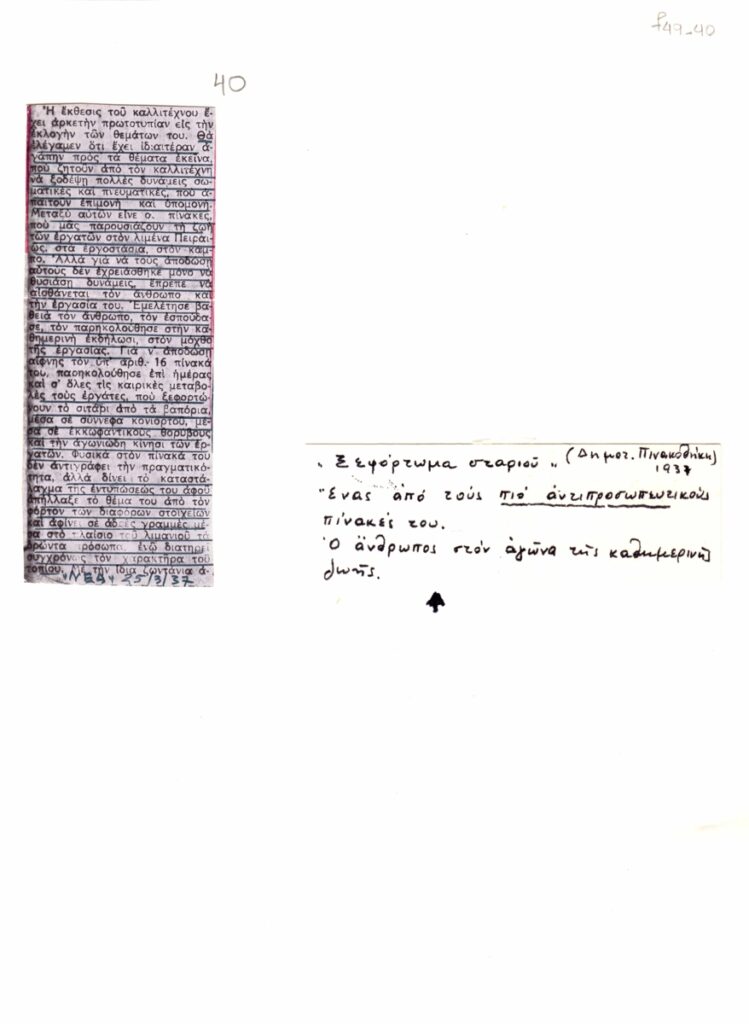 f49-40
40
Ἡ ἔκθεσις τοῦ καλλιτέχνου ἔ-
χει ἀρκετὴν πρωτοτυπίαν εἰς τὴν
ἐκλογὴν τῶν θεμάτων του. Θὰ
ἐλέγαμεν ὅτι ἔχει ἰδιαιτέραν ἀ-
γάπην πρὸς τὰ θέματα ἐκεῖνα,
ποὺ ζητοῦν ἀπὸ τὸν καλλιτέχνη
νὰ ξοδέψῃ πολλὲς δυνάμεις σω-
ματικὲς καὶ πνευματικές, ποὺ ἀ-
παιτοῦν ἐπιμονὴ καὶ ὑπομονή.
Μεταξὺ αὐτῶν εἶνε οἱ πίνακες,
ποὺ μᾶς παρουσιάζουν τὴ ζωὴ
τῶν ἐργατῶν στὸν λιμένα Πειραι-
ῶς, στὰ ἐργοστάσια, στὸν κάμ-
πο. Ἀλλὰ γιὰ νὰ τοὺς ἀποδώσῃ
αὐτοὺς δὲν ἐχρειάσθηκε μόνο νὰ
θυσιάσῃ δυνάμεις, ἔπρεπε νὰ
αἰσθάνεται τὸν ἄνθρωπο καὶ
τὴν ἐργασία του. Ἐμελέτησε βα-
θειὰ τὸν ἄνθρωπο, τὸν ἐσπούδα-
σε, τὸν παρηκολούθησε στὴν κα-
θημερινὴ ἐκδήλωσι, στὸν μόχθο
τῆς ἐργασίας. Γιὰ ν' ἀποδώσῃ
αἴφνης τὸν ὑπ' ἀριθ. 16 πίνακά
του, παρηκολούθησε ἐπὶ ἡμέρας
καὶ σ' ὅλες τὶς καιρικὲς μεταβο-
λὲς τοὺς ἐργάτες, ποὺ ξεφορτώ-
νουν τὸ σιτάρι ἀπὸ τὰ βαπόρια,
μέσα σὲ σύννεφα κονιορτοῦ, μέ-
σα σὲ ἐκκωφαντικοὺς θορύβους
καὶ τὴν ἀγωνιώδη κίνησι τῶν ἐρ-
γατῶν. Φυσικὰ στὸν πίνακά του
δὲν ἀντιγράφει τὴν πραγματικό-
τητα, ἀλλὰ δίνει τὸ καταστά-
λαγμα τῆς ἐντυπώσεώς του ἀφοῦ
ἀπήλλαξε τὸ θέμα του ἀπὸ τὸν
φόρτον τῶν διαφόρων στοιχείων
καὶ ἀφίνει σὲ ἁδρὲς γραμμὲς μέ-
σα στὸ πλαίσιο τοῦ λιμανιοῦ τὰ
δρῶντα πρόσωπα, ἐνῷ διατηρεῖ
συγχρόνως τὸν χαρακτῆρα τοῦ
τοπίου. Μὲ τὴν ἴδια ζωντάνια ἀ-
"ΝΕΑ" 25/3/37
„ Ξεφόρτωμα σταριοῦ „ (Δημοτ. Πινακοθήκη)
1937
Ἕνας ἀπὸ τοὺς πιὸ ἀντιπροσωπευτικοὺς
πίνακές του.
Ὁ ἄνθρωπος στὸν ἀγῶνα τῆς καθημερινῆς
ζωῆς.